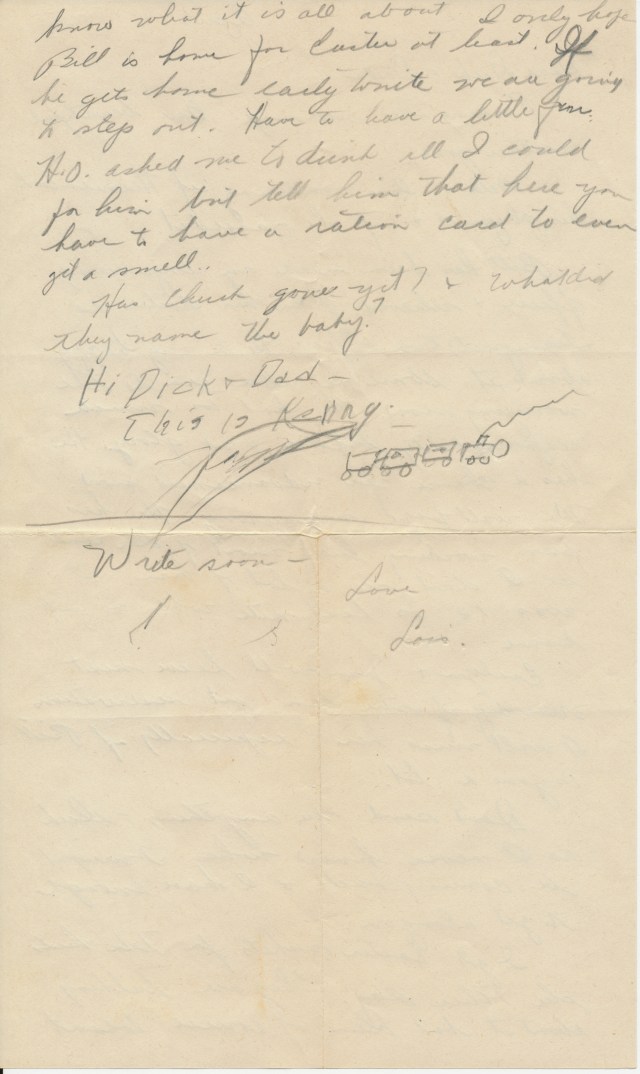 know what it is all about I only hope
Bill is home for Easter at least. If
he gets home early tonite we are going
to step out. Have to have a little fun.
H.O. asked me to drink all I could
for him but tell him that here you
have to have a ration card to even
git a smell..
Has Chuck gone yet? + What did
they name the baby?
Hi Dick + Dad —
This is Kenny. —
Write soon —
Love
Lois.